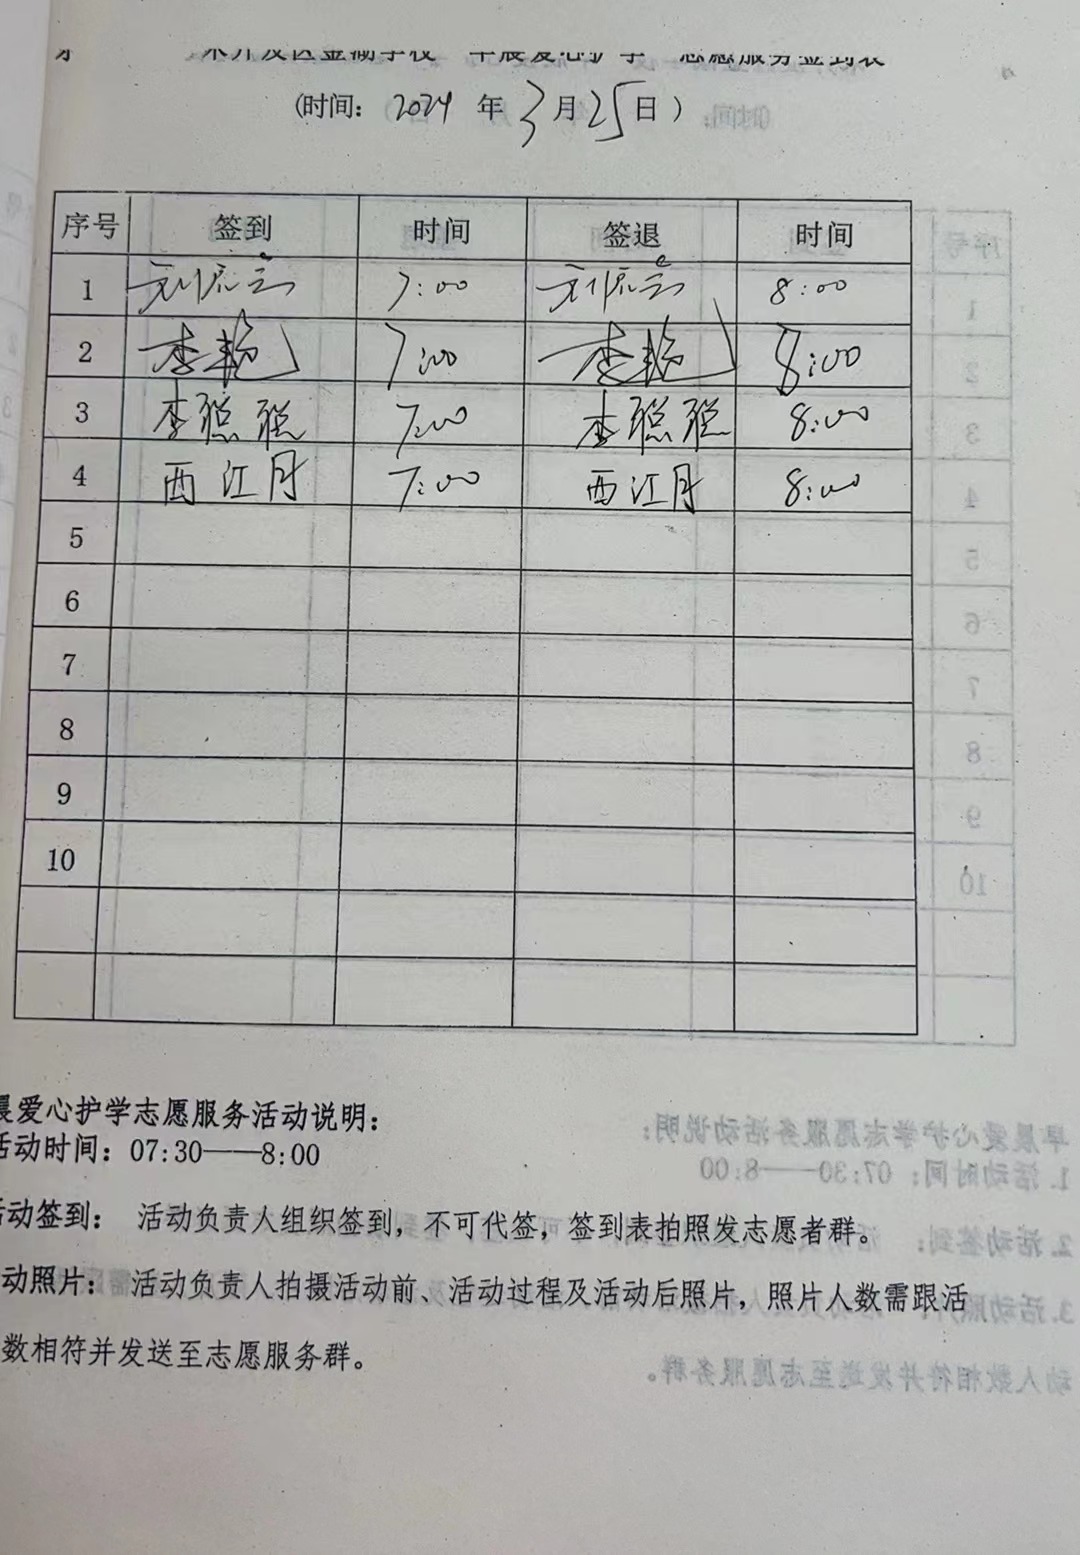 (时间: 2024 年 3月25日)
序号 签到 时间 签退 时间
1 7:00 8:00
2 李艳 7:00 李艳 8:00
3 李聪聪 7:00 李聪聪 8:00
4 西江月 7:00 西江月 8:00
5
6
7
8
9
10
晨爱心护学志愿服务活动说明:
活动时间: 07:30——8:00
活动签到: 活动负责人组织签到, 不可代签, 签到表拍照发志愿者群。
动照片: 活动负责人拍摄活动前、活动过程及活动后照片, 照片人数需跟活
数相符并发送至志愿服务群。